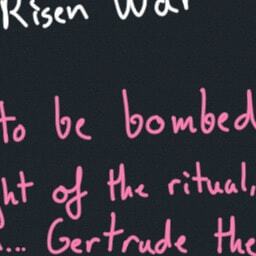 Risen War
to be bombed
ht of the ritual,
... Gertrude the